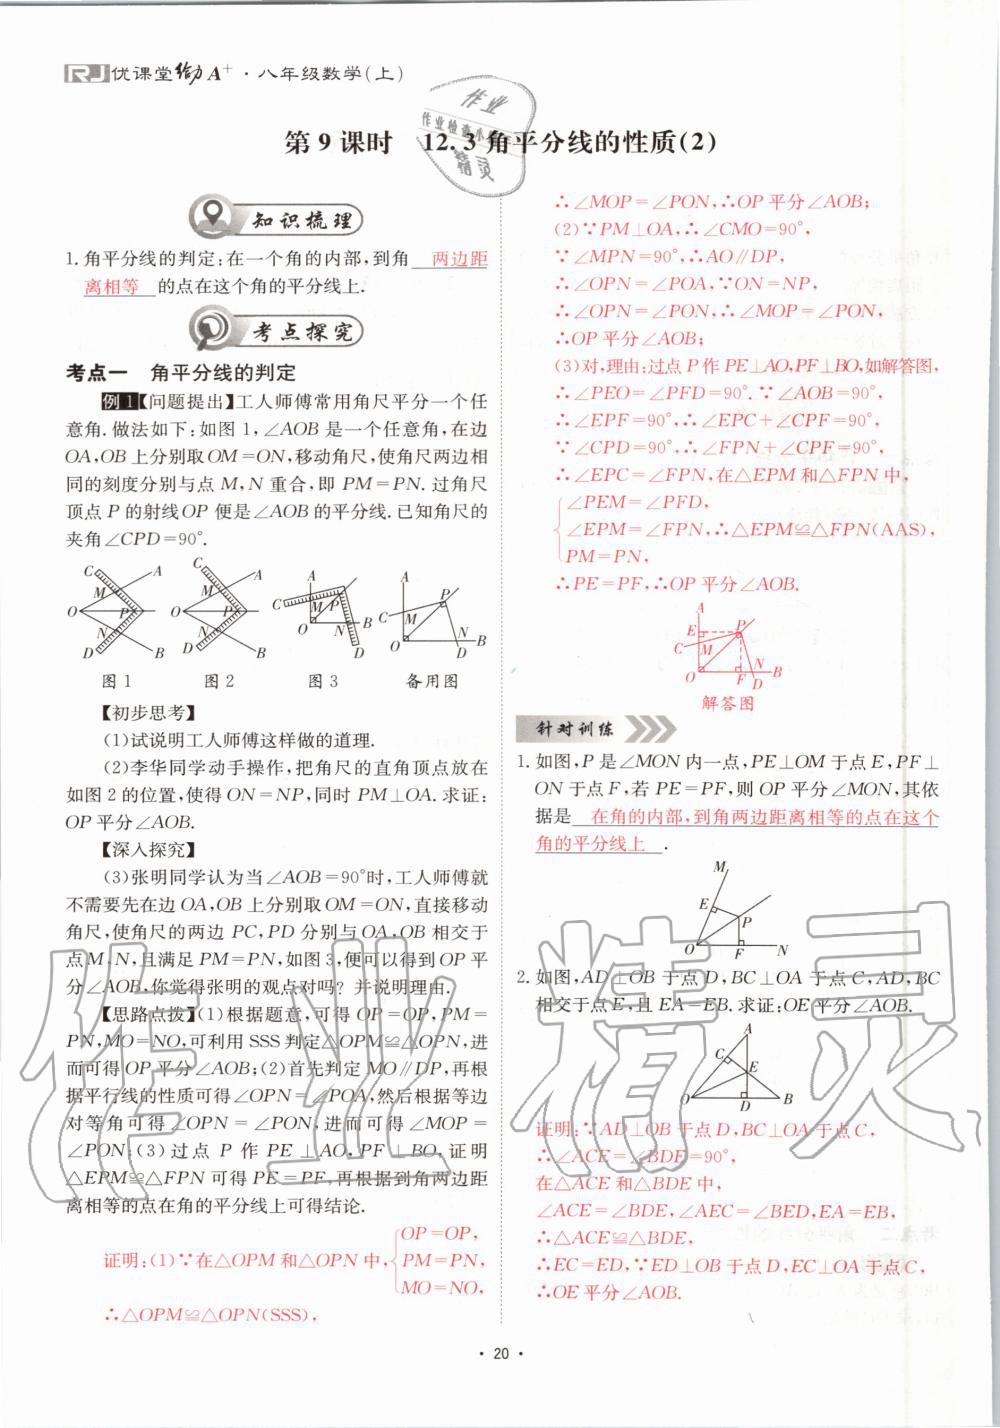 RJ优课堂给力A⁺·八年级数学(上)
第9课时 12.3 角平分线的性质(2)
知识梳理
1. 角平分线的判定:在一个角的内部,到角 两边距
离相等 的点在这个角的平分线上.
考点探究
考点一 角平分线的判定
例1【问题提出】工人师傅常用角尺平分一个任
意角.做法如下:如图1,∠AOB是一个任意角,在边
OA,OB上分别取OM=ON,移动角尺,使角尺两边相
同的刻度分别与点M,N重合,即PM=PN.过角尺
顶点P的射线OP便是∠AOB的平分线.已知角尺的
夹角∠CPD=90°.
C A M O P N D B
C A M O P N D B
A C M P O N B D
A C M P O N B D
图1 图2 图3 备用图
【初步思考】
(1)试说明工人师傅这样做的道理.
(2)李华同学动手操作,把角尺的直角顶点放在
如图2的位置,使得ON=NP,同时PM⊥OA.求证:
OP平分∠AOB.
【深入探究】
(3)张明同学认为当∠AOB=90°时,工人师傅就
不需要先在边OA,OB上分别取OM=ON,直接移动
角尺,使角尺的两边PC,PD分别与OA,OB相交于
点M,N,且满足PM=PN,如图3,便可以得到OP平
分∠AOB,你觉得张明的观点对吗?并说明理由.
【思路点拨】(1)根据题意,可得OP=OP,PM=
PN,MO=NO,可利用SSS判定△OPM≌△OPN,进
而可得OP平分∠AOB;(2)首先判定MO∥DP,再根
据平行线的性质可得∠OPN=∠POA,然后根据等边
对等角可得∠OPN=∠PON,进而可得∠MOP=
∠PON;(3)过点P作PE⊥AO,PF⊥BO,证明
△EPM≌△FPN可得PE=PF,再根据到角两边距
离相等的点在角的平分线上可得结论.
证明:(1)∵在△OPM和△OPN中,
OP=OP,
PM=PN,
MO=NO,
∴△OPM≌△OPN(SSS),
∴∠MOP=∠PON,∴OP平分∠AOB;
(2)∵PM⊥OA,∴∠CMO=90°,
∵∠MPN=90°,∴AO∥DP,
∴∠OPN=∠POA,∵ON=NP,
∴∠OPN=∠PON,∴∠MOP=∠PON,
∴OP平分∠AOB;
(3)对,理由:过点P作PE⊥AO,PF⊥BO,如解答图,
∴∠PEO=∠PFD=90°.∵∠AOB=90°,
∴∠EPF=90°,∴∠EPC+∠CPF=90°,
∵∠CPD=90°,∴∠FPN+∠CPF=90°,
∴∠EPC=∠FPN,在△EPM和△FPN中,
∠PEM=∠PFD,
∠EPM=∠FPN,∴△EPM≌△FPN(AAS),
PM=PN,
∴PE=PF,∴OP平分∠AOB.
A E P C M O F N D B
解答图
针对训练
1. 如图,P是∠MON内一点,PE⊥OM于点E,PF⊥
ON于点F,若PE=PF,则OP平分∠MON,其依
据是 在角的内部,到角两边距离相等的点在这个
角的平分线上 .
M E P O F N
2. 如图,AD⊥OB于点D,BC⊥OA于点C,AD,BC
相交于点E,且EA=EB.求证:OE平分∠AOB.
A C E O D B
证明:∵AD⊥OB于点D,BC⊥OA于点C,
∴∠ACE=∠BDE=90°,
在△ACE和△BDE中,
∠ACE=∠BDE,∠AEC=∠BED,EA=EB,
∴△ACE≌△BDE,
∴EC=ED,∵ED⊥OB于点D,EC⊥OA于点C,
∴OE平分∠AOB.
·20·
作业
作业检查小
精灵
作业精灵